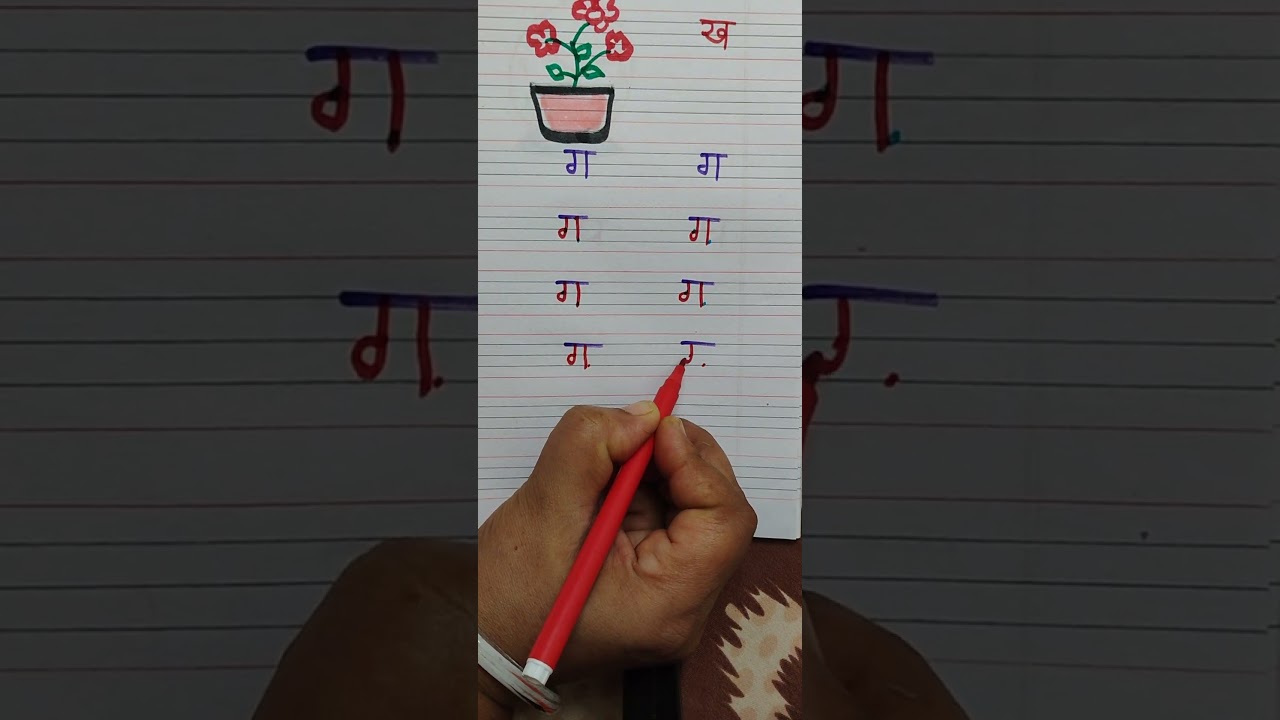 ख
ग ग
ग ग
ग ग
ग